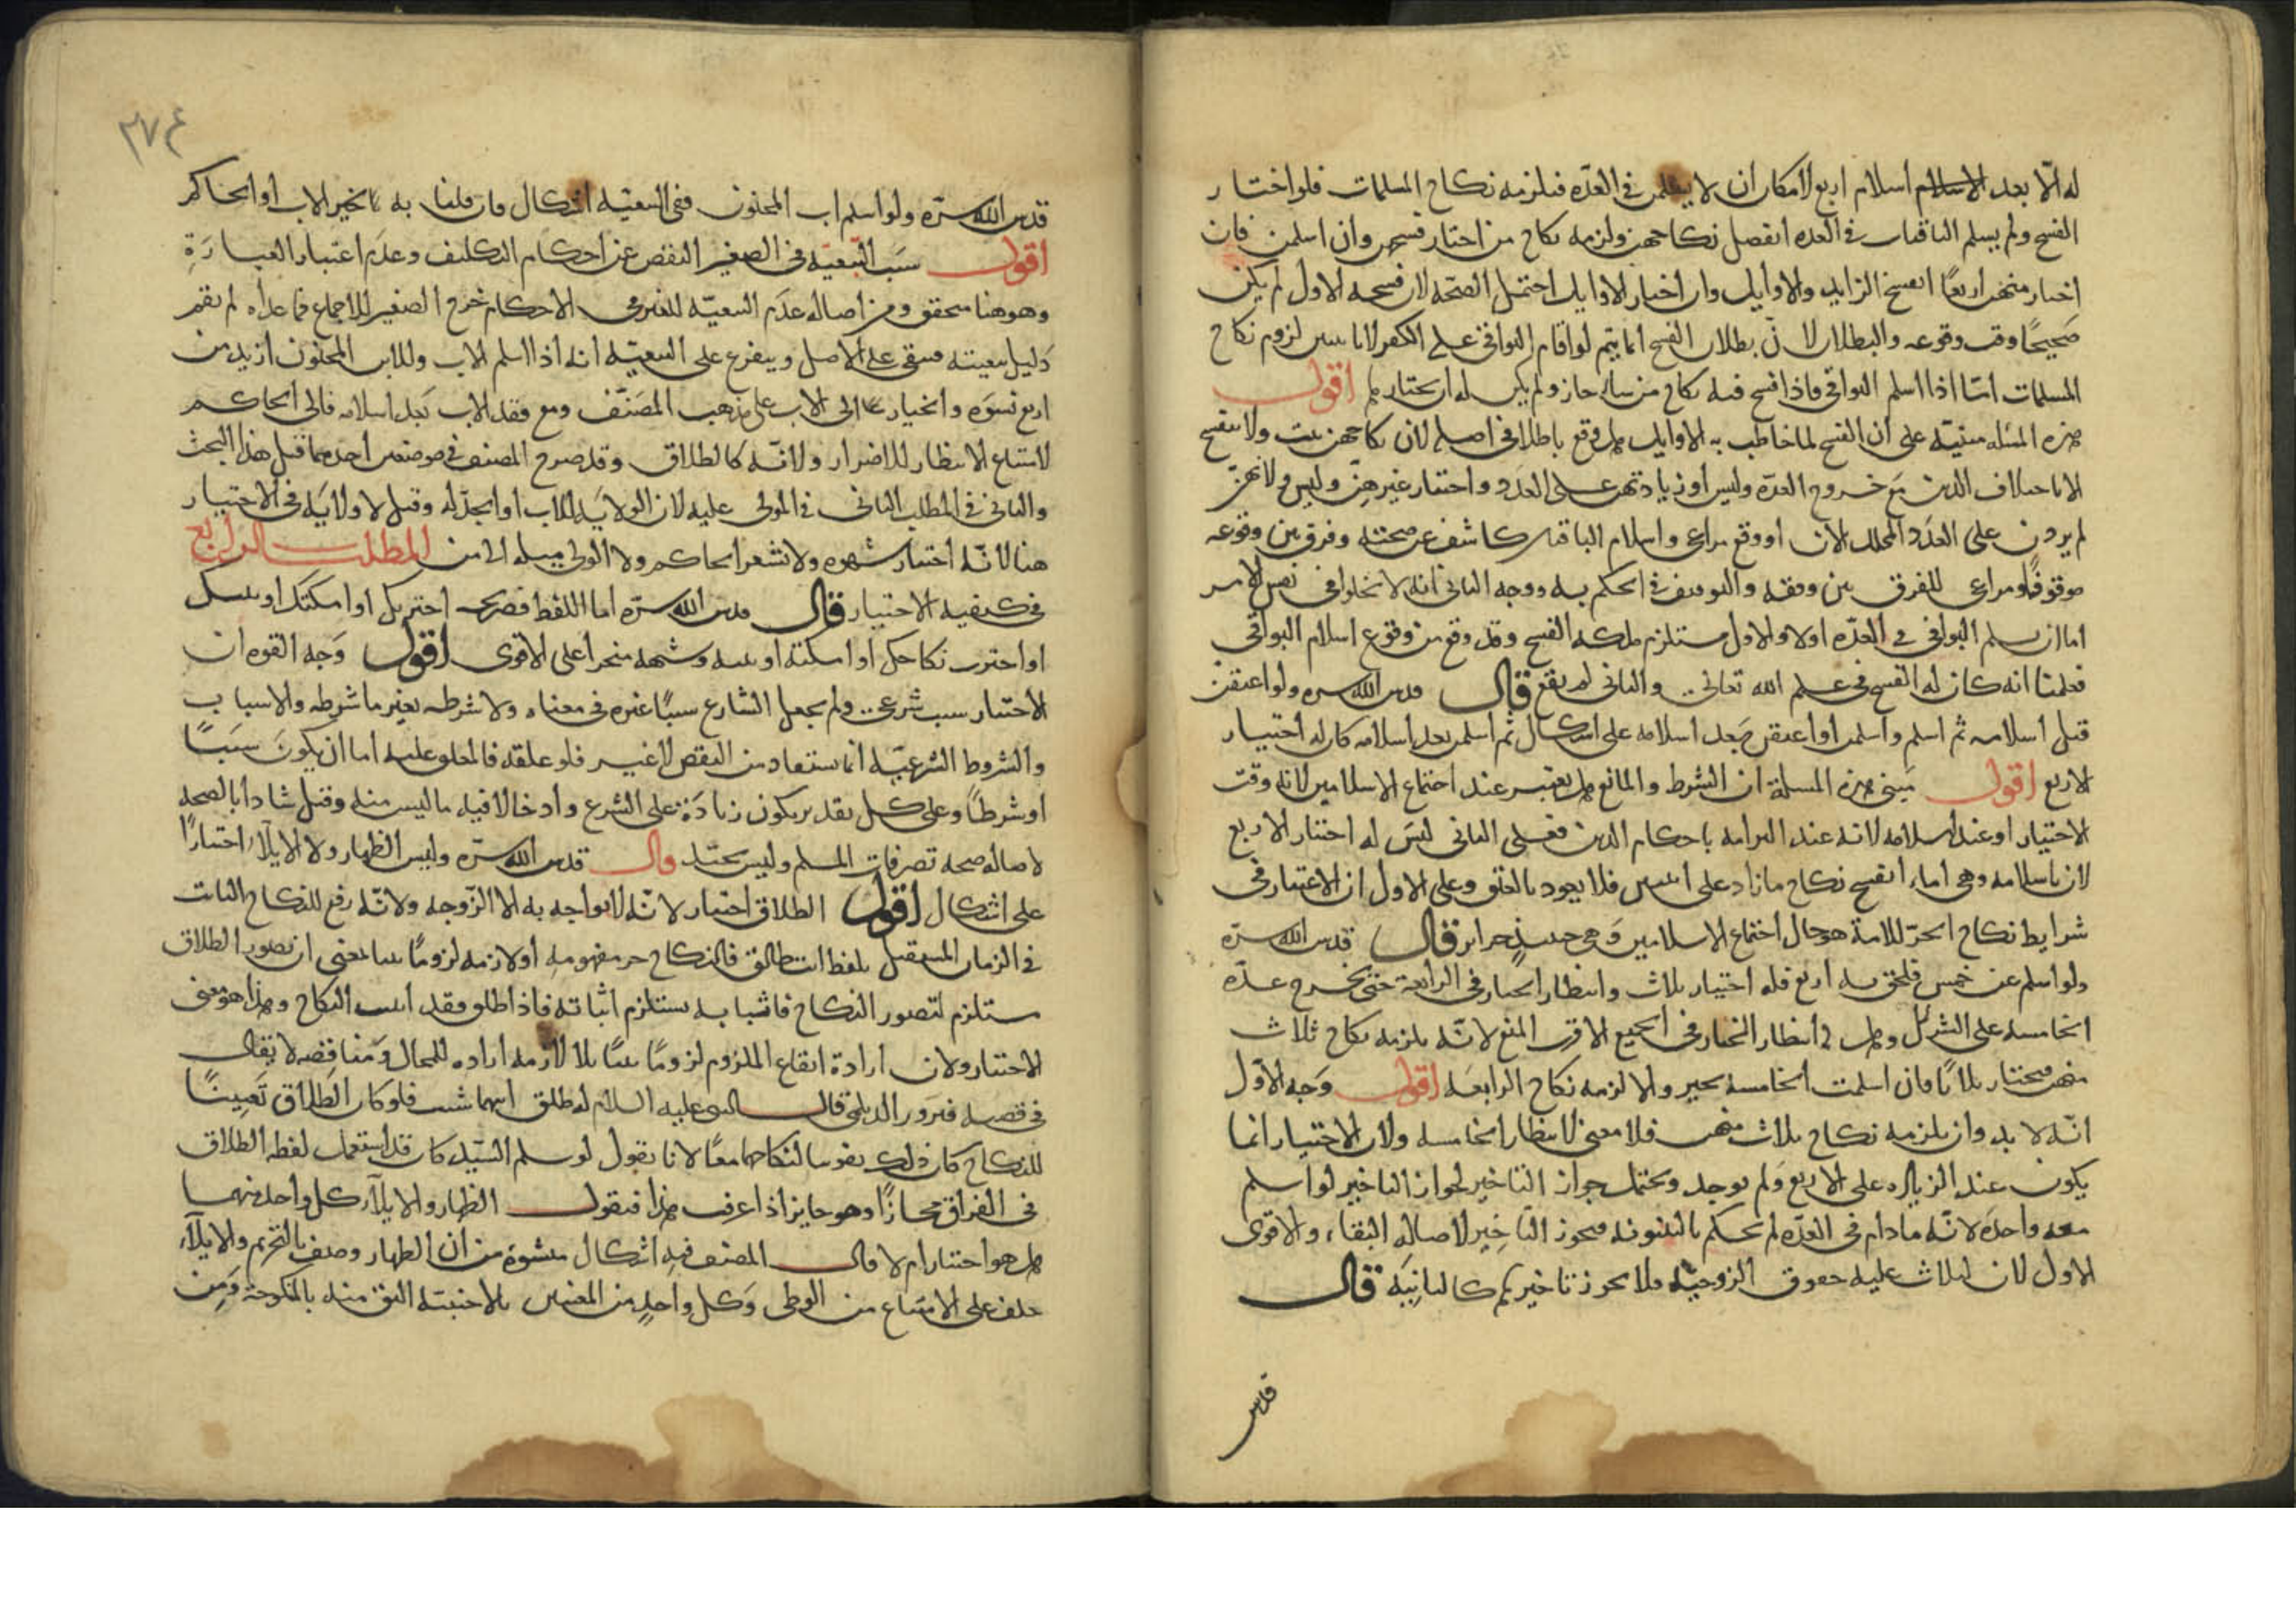 له الا بعد الاسلام اسلام اربع لامكان ان لا يسلمن في العدّة فيلزمه نكاح المسلمات فلو اختار
الفسخ ولم يسلم الباقيات في العده انفصل نكاحهن ولزمه نكاح من اختار فسخهن وان اسلمن فان
اختار منهن اربعًا انفسخ الزايد والاوايل وان اختار الاوايل احتمل الصحّة لان فسخه الاول لم يكن
صحيحًا وقت وقوعه والبطلان لان بطلان الفسخ انما يتم لو اقام البواقي على الكفر لانا نتبين لزوم نكاح
المسلمات امّا اذا اسلم البواقي فاذا فسخ فيه نكاح من شاء جاز ولم يكن له ان يختارهم اقول
هذه المسٔله مبنيّة على ان الفسخ لما خاطب به الاوايل هل وقع باطلا في اصله لان نكاحهن يثبت ولا ينفسخ
الا باختلاف الدين مع خروج العدّة وليس او زيادتهن على العدد واختار غيرهنّ وليس لانهنّ
لم يزدن على العدد المحلل الان او وقع مراعى واسلام الباقيات كاشف عن صحته وفرق بين وقوعه
موقوفًا ومراعى للفرق بين وقفه والتوقف في الحكم به ووجه الثاني انه لا يخلوا في نفس الامر
اما ان يسلم البواقي في العدّه اولا والاول يستلزم ملكه الفسخ وقد وقع من وقوع اسلام البواقي
فعلمنا انه كان له الفسخ في علم الله تعالى والثاني لم يقع قال قدس الله سره ولو اعتقن
قبل اسلامه ثم اسلم واسلمن او اعتقن بعد اسلامه على اشكال ثم اسلمن بعد اسلامه كان له اختيار
الاربع اقول مبنى هذه المسلة ان الشرط والمانع هل يعتبر عند اجتماع الاسلامين لانه وقت
الاختيار او عند اسلامه لانه عند التزامه باحكام الدين فعلى الثاني ليس له اختيار الاربع
لان باسلامه وهي اماء انفسخ نكاح ما زاد على اثنتين فلا يعود بالعتق وعلى الاول ان الاعتبار في
شرايط نكاح الحرّ للامة هو حال اجتماع الاسلامين وهي حينئذٍ حراير قال قدس الله سرّه
ولو اسلم عن خمس فلحق به اربع فله اختيار ثلاث وانتظار الخيار في الرابعة حتى يخرج عدّه
الخامسة على الشرك وهل له انتظار الخيار في الجميع الاقرب المنع لانّه يلزمه نكاح ثلاث
منهن فيختار ثلاثًا فان اسلمت الخامسه تخير والا لزمه نكاح الرابعه اقول وجه الاوّل
انّه لا بد وان يلزمه نكاح ثلاث منهن فلا معنى لانتظار الخامسه ولان الاختيار انما
يكون عند الزياده على الاربع ولم يوجد ويحتمل جواز التاخير لجواز التاخير لو اسلم
معه واحدة لانّه ما دام في العدّه لم يحكم بالبينونه فيجوز التاخير لاصالة البقاء والاقوى
الاول لان لثلاث عليه حقوق الزوجيّه فلا يجوز تاخيرهم كالثانية قال
قدس
٢٧٤
قدس الله سرّه ولو اسلم اب المجنون ففي التبعيّه اشكال فان قلنا به تخير الاب او الحاكم
اقول سبب التّبعيّه في الصغير النقص عن احكام التكليف وعدم اعتبار العبارة
وهو هنا متحقق ومن اصالة عدم التبعيّه للغير في الاحكام خرج الصغير للاجماع فما عداه لم يقم
دليل تبعيته فيبقى على الاصل ويتفرع على التبعيّه انه اذا اسلم الاب وللابن المجنون ازيد من
اربع نسوة والخيار الى الاب على مذهب المصنّف ومع فقد الاب بعد اسلامه فالى الحاكم
لامتناع الانتظار للاضرار ولانّه كالطلاق وقد صرح المصنف في موضعين احدهما قبل هذا البحث
والثاني في المطلب الثاني في المولى عليه لان الولاية للاب او الجدّ له وقيل لا ولاية في الاختيار
هنا لانّه اختيار شهوه ولا يشعر الحاكم ولا الولي بميله الى من المطلب الرابع
في كيفيه الاختيار قال قدس الله سرّه اما اللفظ فصريح اخترتكِ او امسكتك او
او اخترت نكاحكِ او امسكته او وشبهه منجزًا على الاقوى اقول وجه القوه ان
الاختيار سبب شرعي ولم يجعل الشارع سببًا غيره في معناه ولا شرطه بغير ما شرطه والاسباب
والشروط الشرعيّه انما تستفاد من النقص لا غير فلو علقه فالمعلق عليه اما ان يكون سببًا
او شرطًا وعلى كل تقدير يكون زيادة على الشرع وادخالا فيه ما ليس منه وقيل شاذا بالصحه
لاصاله صحه تصرفات المسلم وليس بجيّد قال قدس الله سرّه وليس الظهار ولا الايلآء اختيارًا
على اشكال اقول الطلاق اختيار لانّه لا يواجه به الا الزّوجه ولانّه رفع للنكاح الثابت
في الزمان المستقبل بلفظ انت طالق فالنكاح جزء مفهومه او لازمه لزومًا بينا بمعنى ان تصور الطلاق
يستلزم لتصور النكاح فاثباته يستلزم اثباته فاذا طلق فقد اثبت النكاح وهذا هو معنى
الاختيار ولان ارادة ايقاع الملزوم لزومًا بيّنًا بلا لازمه اراده للمحال ومناقضه لا يقال
في قصه فيروز الديلمي قال النبي عليه السلام له طلق ايهما شئت فلو كان الطّلاق تعيينًا
للنكاح كان ذلك لنكاحهما معًا لانا نقول لو سلم السّيد كان قد استعمل لفظ الطلاق
في الفراق مجازًا وهو جايز اذا عرف هذا فنقول الظهار والايلآء كل واحد منهما
هل هو اختيار ام لا قال المصنف فيه اشكال منشؤه من ان الظهار وصف بالتحريم والايلآء
حلف على الامتناع من الوطي وكل واحدٍ من المعنيين بالاجنبيّه اليق منه بالمنكوحة ومن